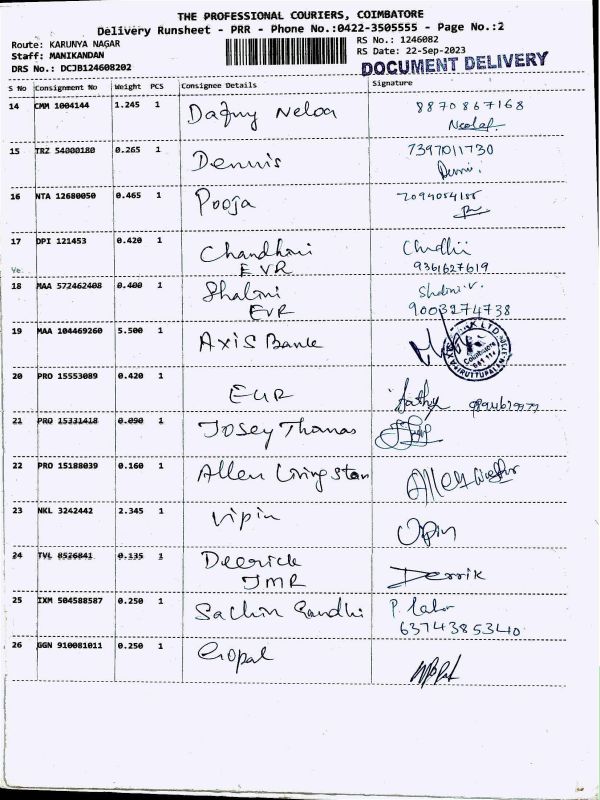 THE PROFESSIONAL COURIERS, COIMBATORE
Delivery Runsheet - PRR - Phone No.:0422-3505555 - Page No.:2
Route: KARUNYA NAGAR RS No.: 1246082
Staff: MANIKANDAN RS Date: 22-Sep-2023
DRS No.: DCJB124608202 DOCUMENT DELIVERY
S No Consignment No Weight PCS Consignee Details Signature
14 CMM 1004144 1.245 1 8870867168
15 TRZ 54000180 0.265 1 Dennis 7397011730
16 NTA 12680050 0.465 1 Pooja
17 DPI 121453 0.420 1 Chandhini
EVR 9361627619
Ye.
18 MAA 572462408 0.400 1 Shalini Shalini.V.
EVR 9003274738
19 MAA 104469260 5.500 1 Axis Bank
20 PRO 15553089 0.420 1 EVR
21 PRO 15331418 0.090 1 Josey Thomas
22 PRO 15188039 0.160 1 Allen Livingstan
23 NKL 3242442 2.345 1 Vipin
24 TVL 8526841 0.135 1 Deerick Derrik
JMR
25 IXM 504588587 0.250 1 Sachin Gandhi
6374385340
26 GGN 910081011 0.250 1 Gopal